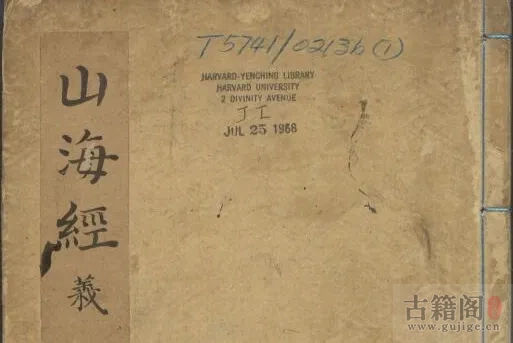 山海經
義
T5741/0213b(1)
HARVARD-YENCHING LIBRARY
HARVARD UNIVERSITY
2 DIVINITY AVENUE
JUL 25 1968
古籍阁
www.gujige.cn